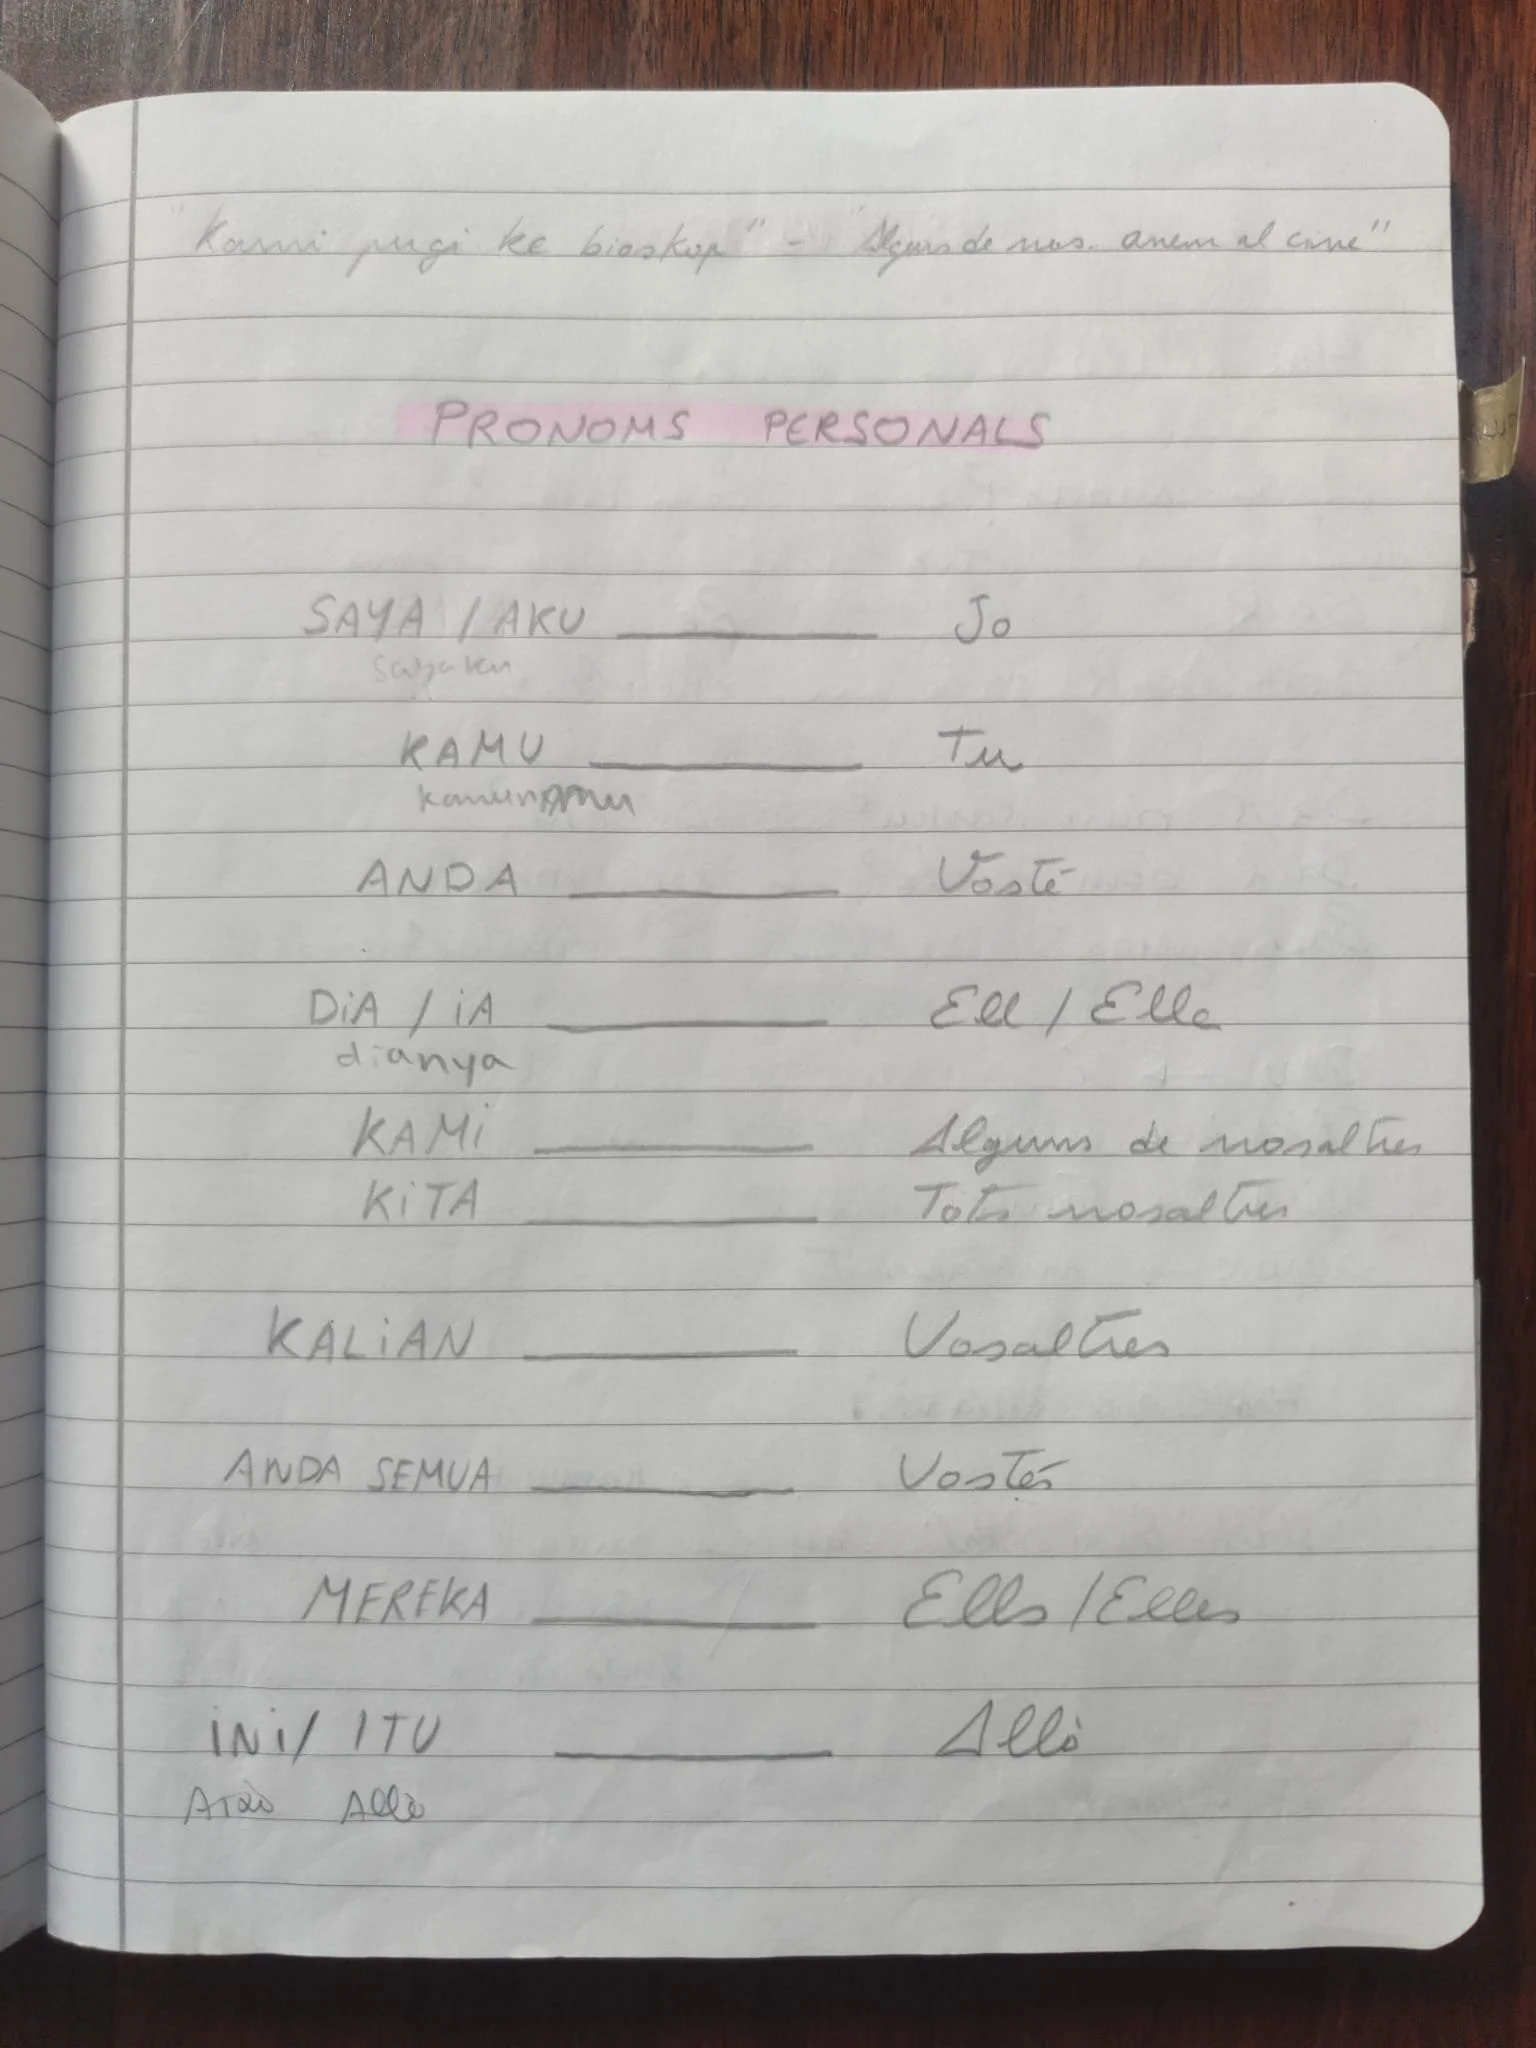 "Kami pugi ke bioskop" - "Alguns de nos. anem al cine"
PRONOMS PERSONALS
SAYA / AKU ——— Jo
sayaku
KAMU ——— Tu
ANDA ——— Vostè
DiA / iA ——— Ell / Ella
dianya
KAMi ——— Alguns de nosaltres
KiTA ——— Tots nosaltres
KALiAN ——— Vosaltres
ANDA SEMUA ——— Vostés
MEREKA ——— Ells / Elles
iNi / ITU ——— Allò
Això Allò